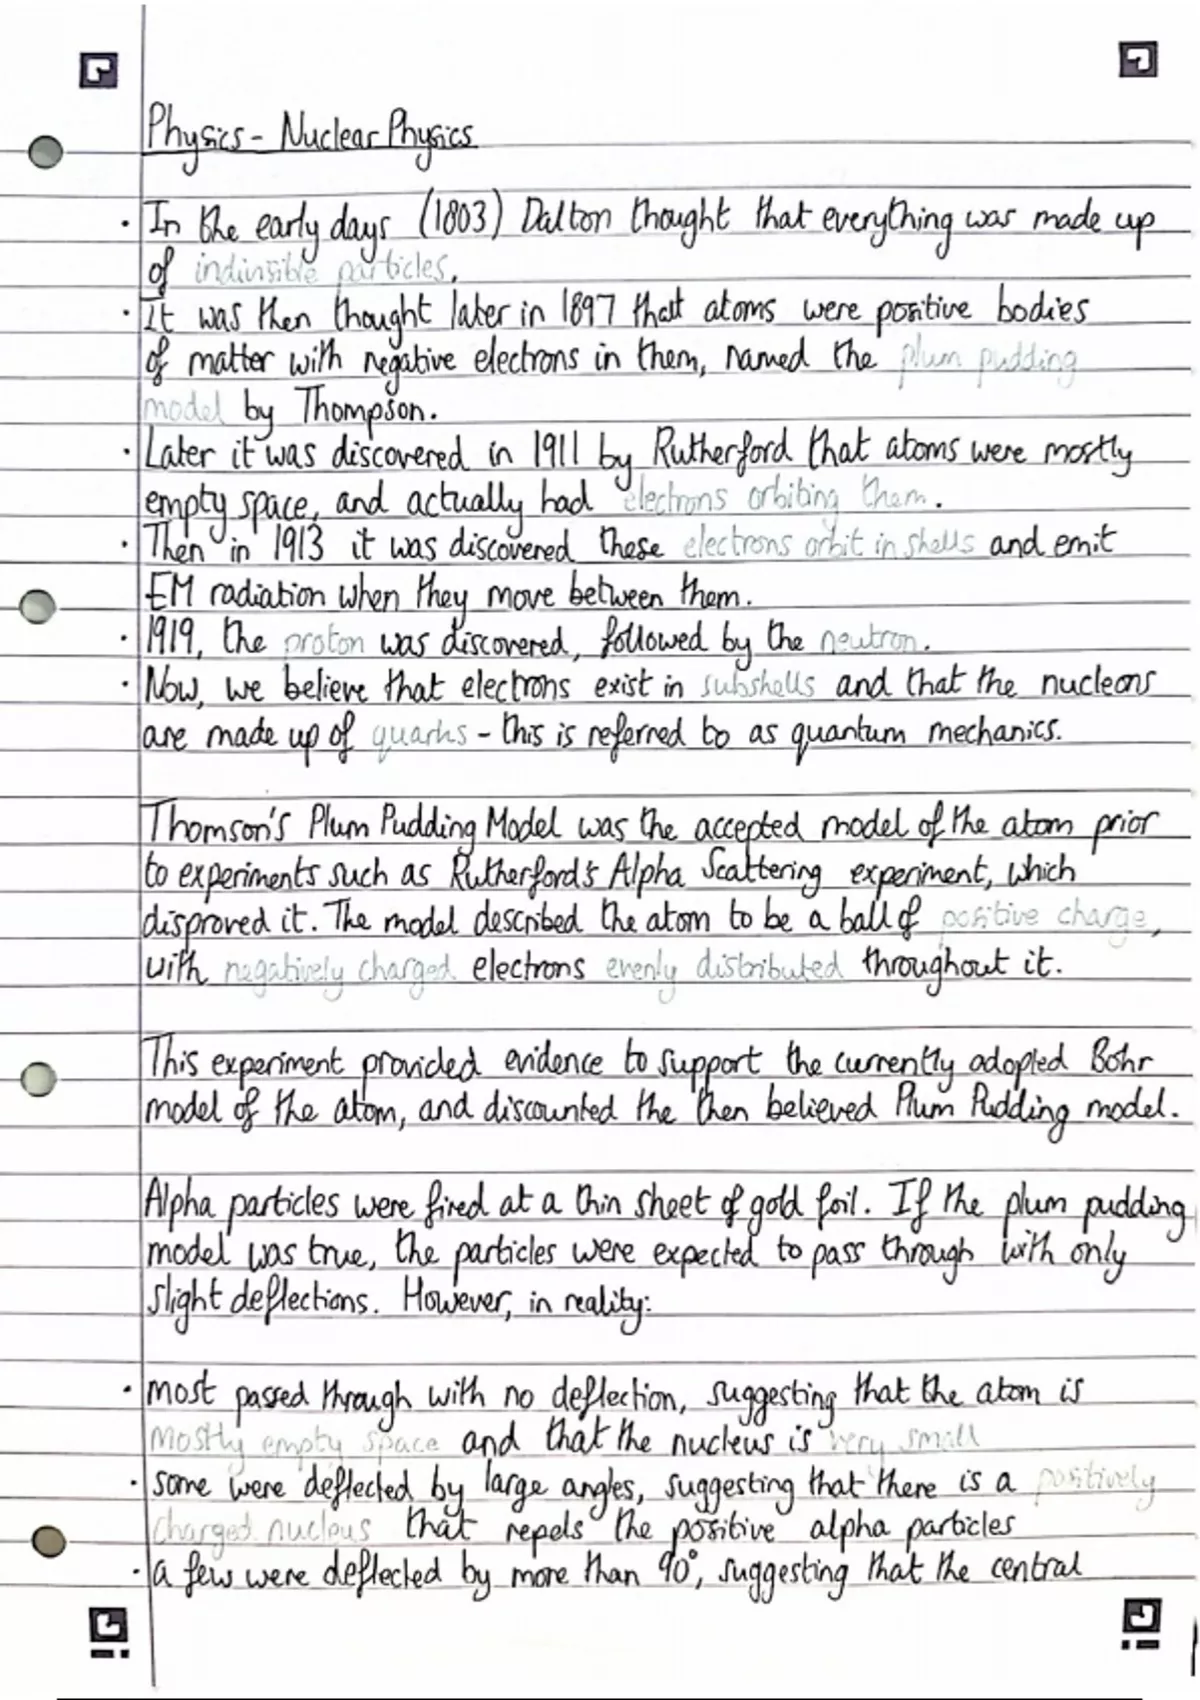 Physics - Nuclear Physics
· In the early days (1803) Dalton thought that everything was made up
of indivisible particles.
· It was then thought later in 1897 that atoms were positive bodies
of matter with negative electrons in them, named the plum pudding
model by Thompson.
· Later it was discovered in 1911 by Rutherford that atoms were mostly
empty space, and actually had electrons orbiting them.
· Then in 1913 it was discovered these electrons orbit in shells and emit
EM radiation when they move between them.
· 1919, the proton was discovered, followed by the neutron.
· Now, we believe that electrons exist in subshells and that the nucleons
are made up of quarks - this is referred to as quantum mechanics.
Thomson's Plum Pudding Model was the accepted model of the atom prior
to experiments such as Rutherford's Alpha Scattering experiment, which
disproved it. The model described the atom to be a ball of positive charge,
with negatively charged electrons evenly distributed throughout it.
This experiment provided evidence to support the currently adopted Bohr
model of the atom, and discounted the then believed Plum Pudding model.
Alpha particles were fired at a thin sheet of gold foil. If the plum pudding
model was true, the particles were expected to pass through with only
slight deflections. However, in reality:
· most passed through with no deflection, suggesting that the atom is
mostly empty space and that the nucleus is very small
· some were deflected by large angles, suggesting that there is a positively
charged nucleus that repels the positive alpha particles
· a few were deflected by more than 90°, suggesting that the central